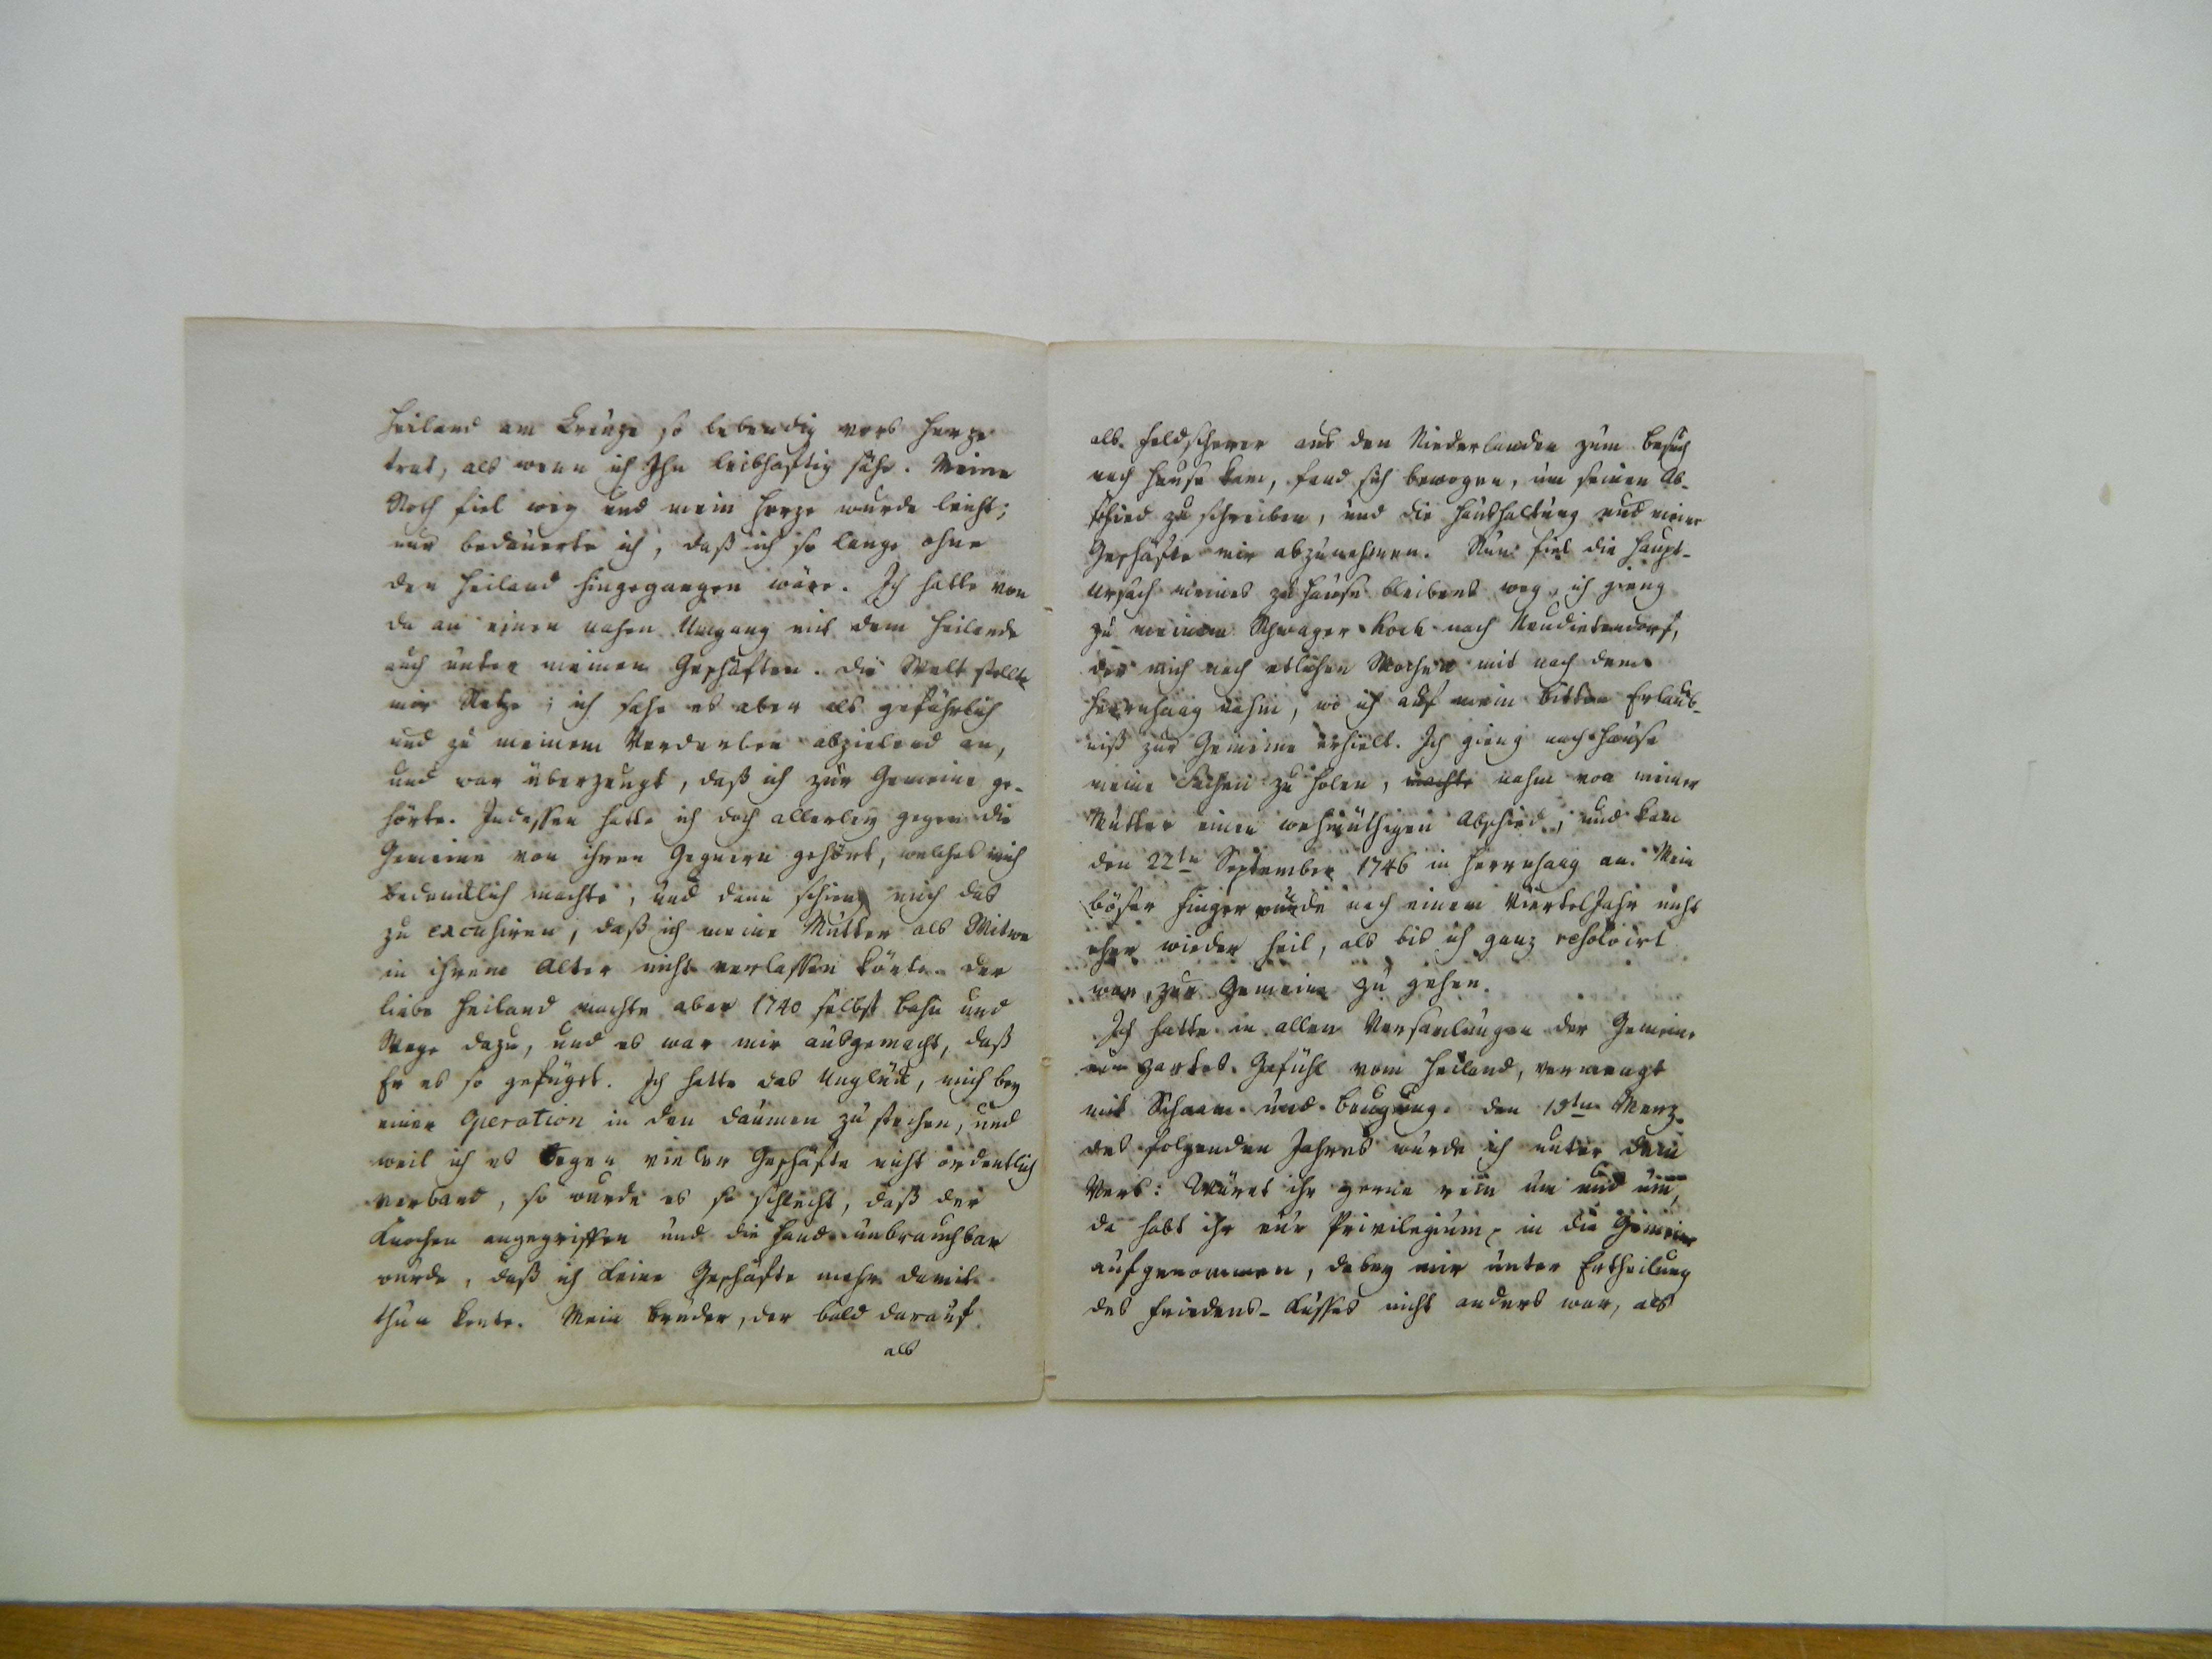 Heiland am Creuze so lebendig vors Herze
trat, als wenn ich Ihn leibhaftig sähe. Meine
Noth fiel weg und mein Herze wurde leicht;
nur bedauerte ich, daß ich so lange ohne
den Heiland hingegangen wäre. Ich hatte von
da an einen nahen Umgang mit dem Heilande
auch unter meinen Geschäften. Die Welt stellte
mir Netze; ich sahe es aber als gefährlich
und zu meinem Verderben abzielend an,
und war überzeugt, daß ich zur Gemeine ge-
hörte. Indessen hatte ich doch allerley gegen die
Gemeine von ihren Gegnern gehört, welches mich
bedencklich machte, und dann schien mich das
zu excusiren, daß ich meine Mutter als Witwe
in ihrem Alter nicht verlassen könte. Der
liebe Heiland machte aber 1740 selbst Bahn und
Wege dazu, und es war mir ausgemacht, daß
Er es so gefügt. Ich hatte das Unglück, mich bey
einer Operation in den Daumen zu stechen, und
weil ich es wegen vieler Geschäfte nicht ordentlich
verband, so wurde es so schlecht, daß der
Knochen angegriffen und die Hand unbrauchbar
wurde, daß ich keine Geschäfte mehr damit
thun konte. Mein Bruder, der bald darauf
als
als Feldscherer aus den Niederlanden zum Besuch
nach Hause kam, fand sich bewogen, um seinen Ab-
schied zu schreiben, und die Haushaltung und meine
Geschäfte mir abzunehmen. Nun fiel die Haupt-
Ursach meines zu Hause bleibens weg, ich gieng
zu meinem Schwager Kock nach Neudietendorf,
der mich nach etlichen Wochen mit nach dem
Herrnhaag nahm, wo ich auf mein bitten Erlaub-
niß zur Gemeine erhielt. Ich gieng nach Hause
meine Sachen zu holen, machte nahm von meiner
Mutter einen wehmüthigen Abschied, und kam
den 22tn September 1746 in Herrnhaag an. Mein
böser Finger wurde nach einem Viertel Jahr nicht
eher wieder heil, als bis ich ganz resolvirt
war, zur Gemeine zu gehen.
Ich hatte in allen Versamlungen der Gemeine
ein zartes Gefühl vom Heiland, vermengt
mit Schaam und Beugung. Den 19tn Merz
des folgenden Jahres wurde ich unter dem
Vers: Wäret ihr gerne rein um und um,
da habt ihr eur Privilegium, in die Gemeine
aufgenommen, dabey mir unter Ertheilung
des Friedens-Kusses nicht anders war, als